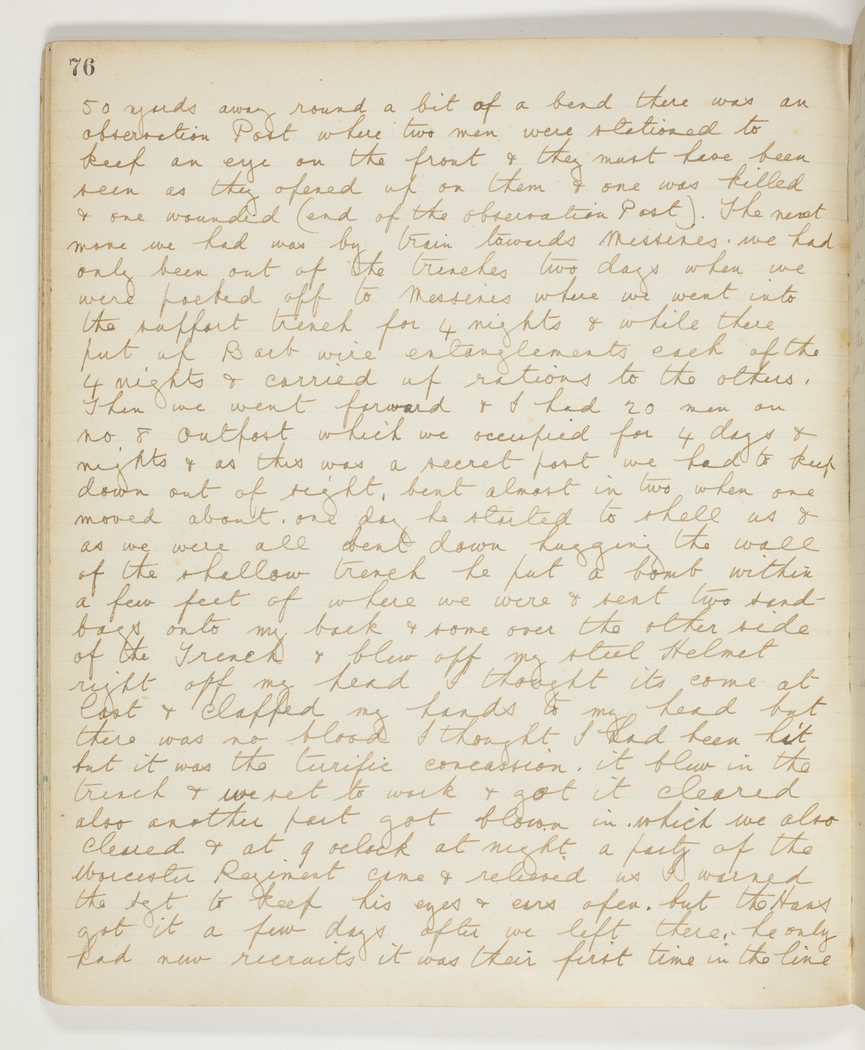 76
50 yards away round a bit of a bend there was an
observation Post where two men were stationed to
keep an eye on the front & they must have been
seen as they opened up on them & one was killed
& one wounded (end of the observation Post). The next
move we had was by train towards Messines. we had
only been out of the trenches two days when we
were packed off to Messines where we went into
the support trench for 4 nights & while there
put up Barb wire entanglements each of the
4 nights & carried up rations to the others.
Then we went forward & I had 20 men on
no 8 outpost which we occupied for 4 days &
nights & as this was a secret post we had to keep
down out of sight, bent almost in two when one
moved about. one day he started to shell us &
as we were all bent down hugging the wall
of the shallow trench he put a bomb within
a few feet of where we were & sent two sand-
bags onto my back & some over the other side
of the Trench & blew off my steel Helmet
right off my head I thought its come at
last & clapped my hands to my head but
there was no blood I thought I had been hit
but it was the terrific concussion. it blew in the
trench & we set to work & got it cleared
also another part got blown in which we also
cleared & at 9 oclock at night a party of the
Worcester Regiment came & relieved us I warned
the sgt to keep his eyes & ears open. but the Huns
got it a few days after we left there, he only
had new recruits it was their first time in the line